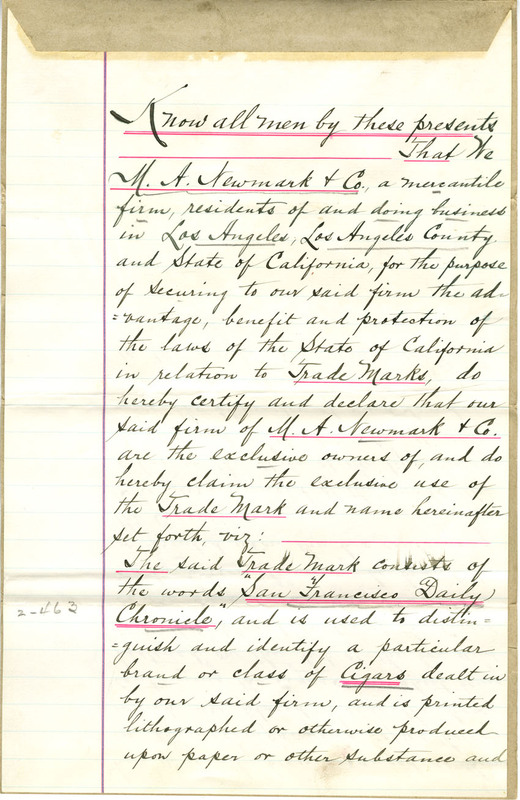 Know all men by these presents
That We
M. A. Newmark & Co., a mercantile
firm, residents of and doing business
in Los Angeles, Los Angeles County
and State of California, for the purpose
of securing to our said firm the ad-
=vantage, benefit and protection of
the laws of the State of California
in relation to Trade Marks, do
hereby certify and declare that our
said firm of M. A. Newmark & Co.
are the exclusive owners of, and do
hereby claim the exclusive use of
the Trade Mark and name hereinafter
set forth, viz:
The said Trade Mark consists of
the words "San Francisco Daily
2-463
Chronicle", and is used to distin=
=guish and identify a particular
brand or class of Cigars dealt in
by our said firm, and is printed
lithographed or otherwise produced
upon paper or other substance and